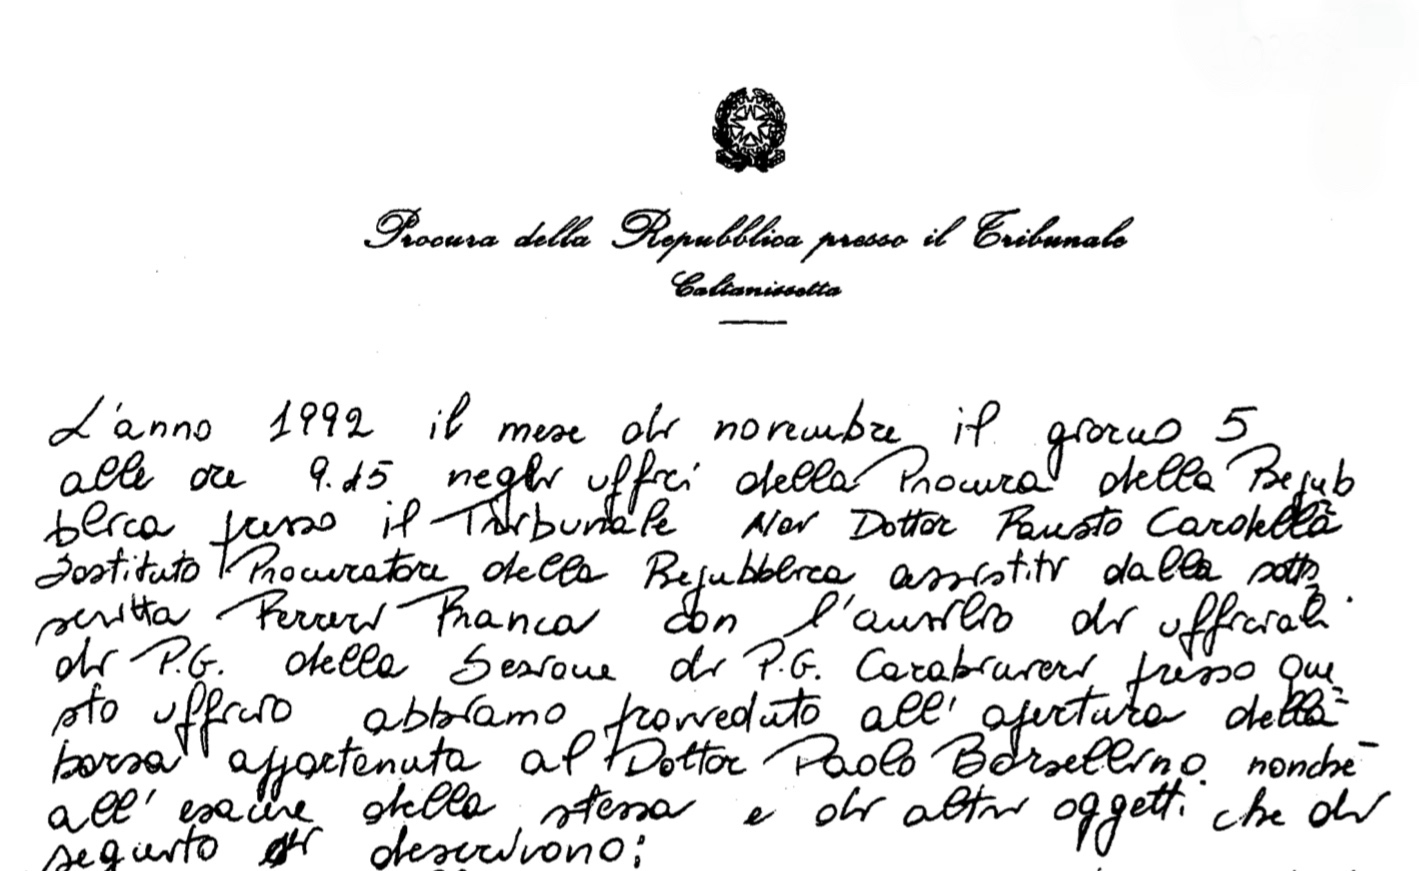 Procura della Repubblica presso il Tribunale
Caltanissetta
L'anno 1992 il mese di novembre il giorno 5
alle ore 9.15 negli uffici della Procura della Repub
blica presso il Tribunale Noi Dottor Fausto Cardella
Sostituto Procuratore della Repubblica assistiti dalla sotto
scritta Ferreri Franca con l'ausilio di ufficiali
di P.G. della Sezione di P.G. Carabinieri presso que
sto ufficio abbiamo provveduto all'apertura della
borsa appartenuta al Dottor Paolo Borsellino nonchè
all'esame della stessa e di altri oggetti che di
seguito si descrivono: